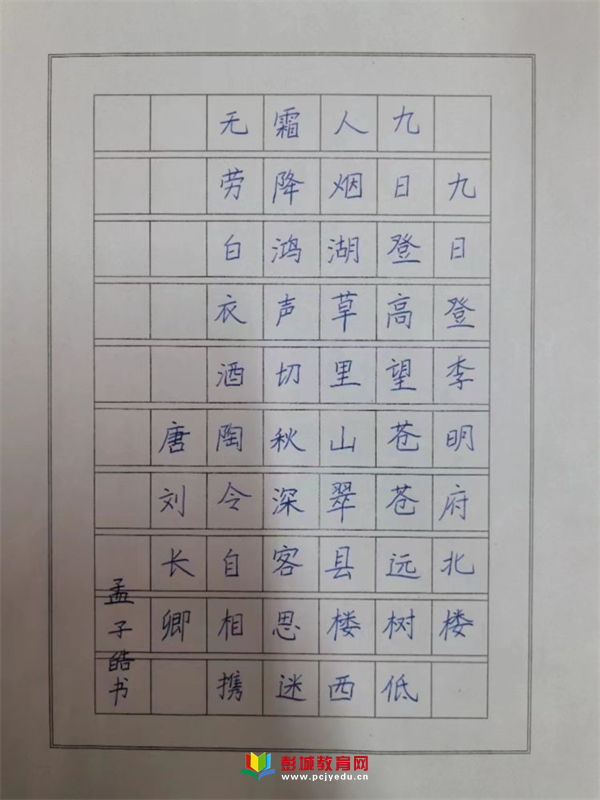 九日登李明府北楼
九日登高望苍苍远树低
人烟湖草里山翠县楼西
霜降鸿声切秋深客思迷
无劳白衣酒陶令自相携
唐刘长卿
孟子皓书
彭城教育网
www.pcjyedu.cn